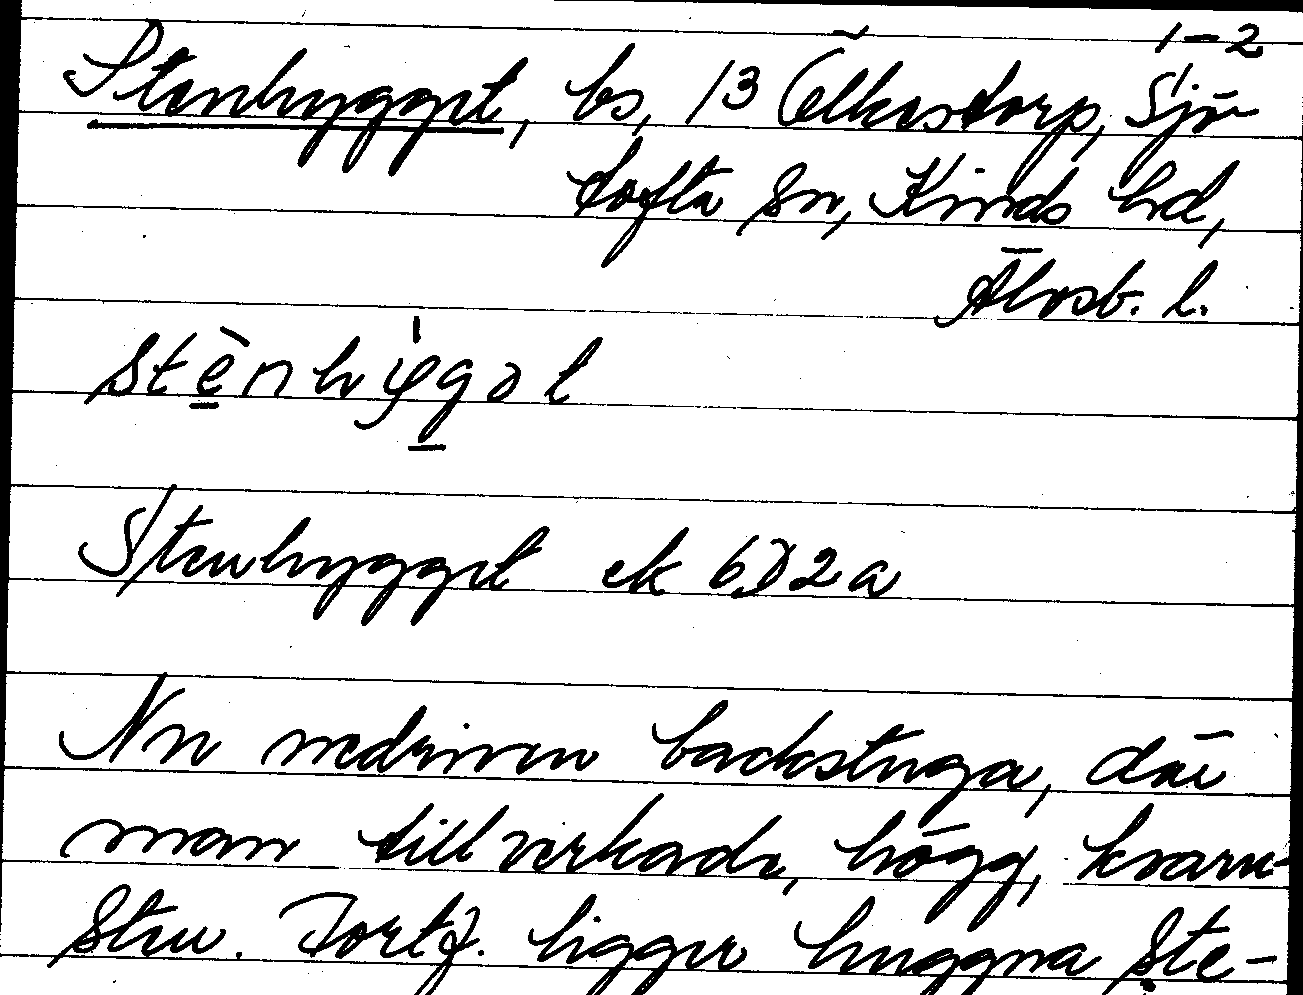 1-2
Stenhygget, bs, 13 Ölkerstorp, Sjö-
tofta sn, Kinds hd,
Älvsb. l.
Stenhygget ek 6D2a
Nu nedriven backstuga, där
man tillverkade, högg, kvarn-
sten. Fortf. ligger huggna ste-